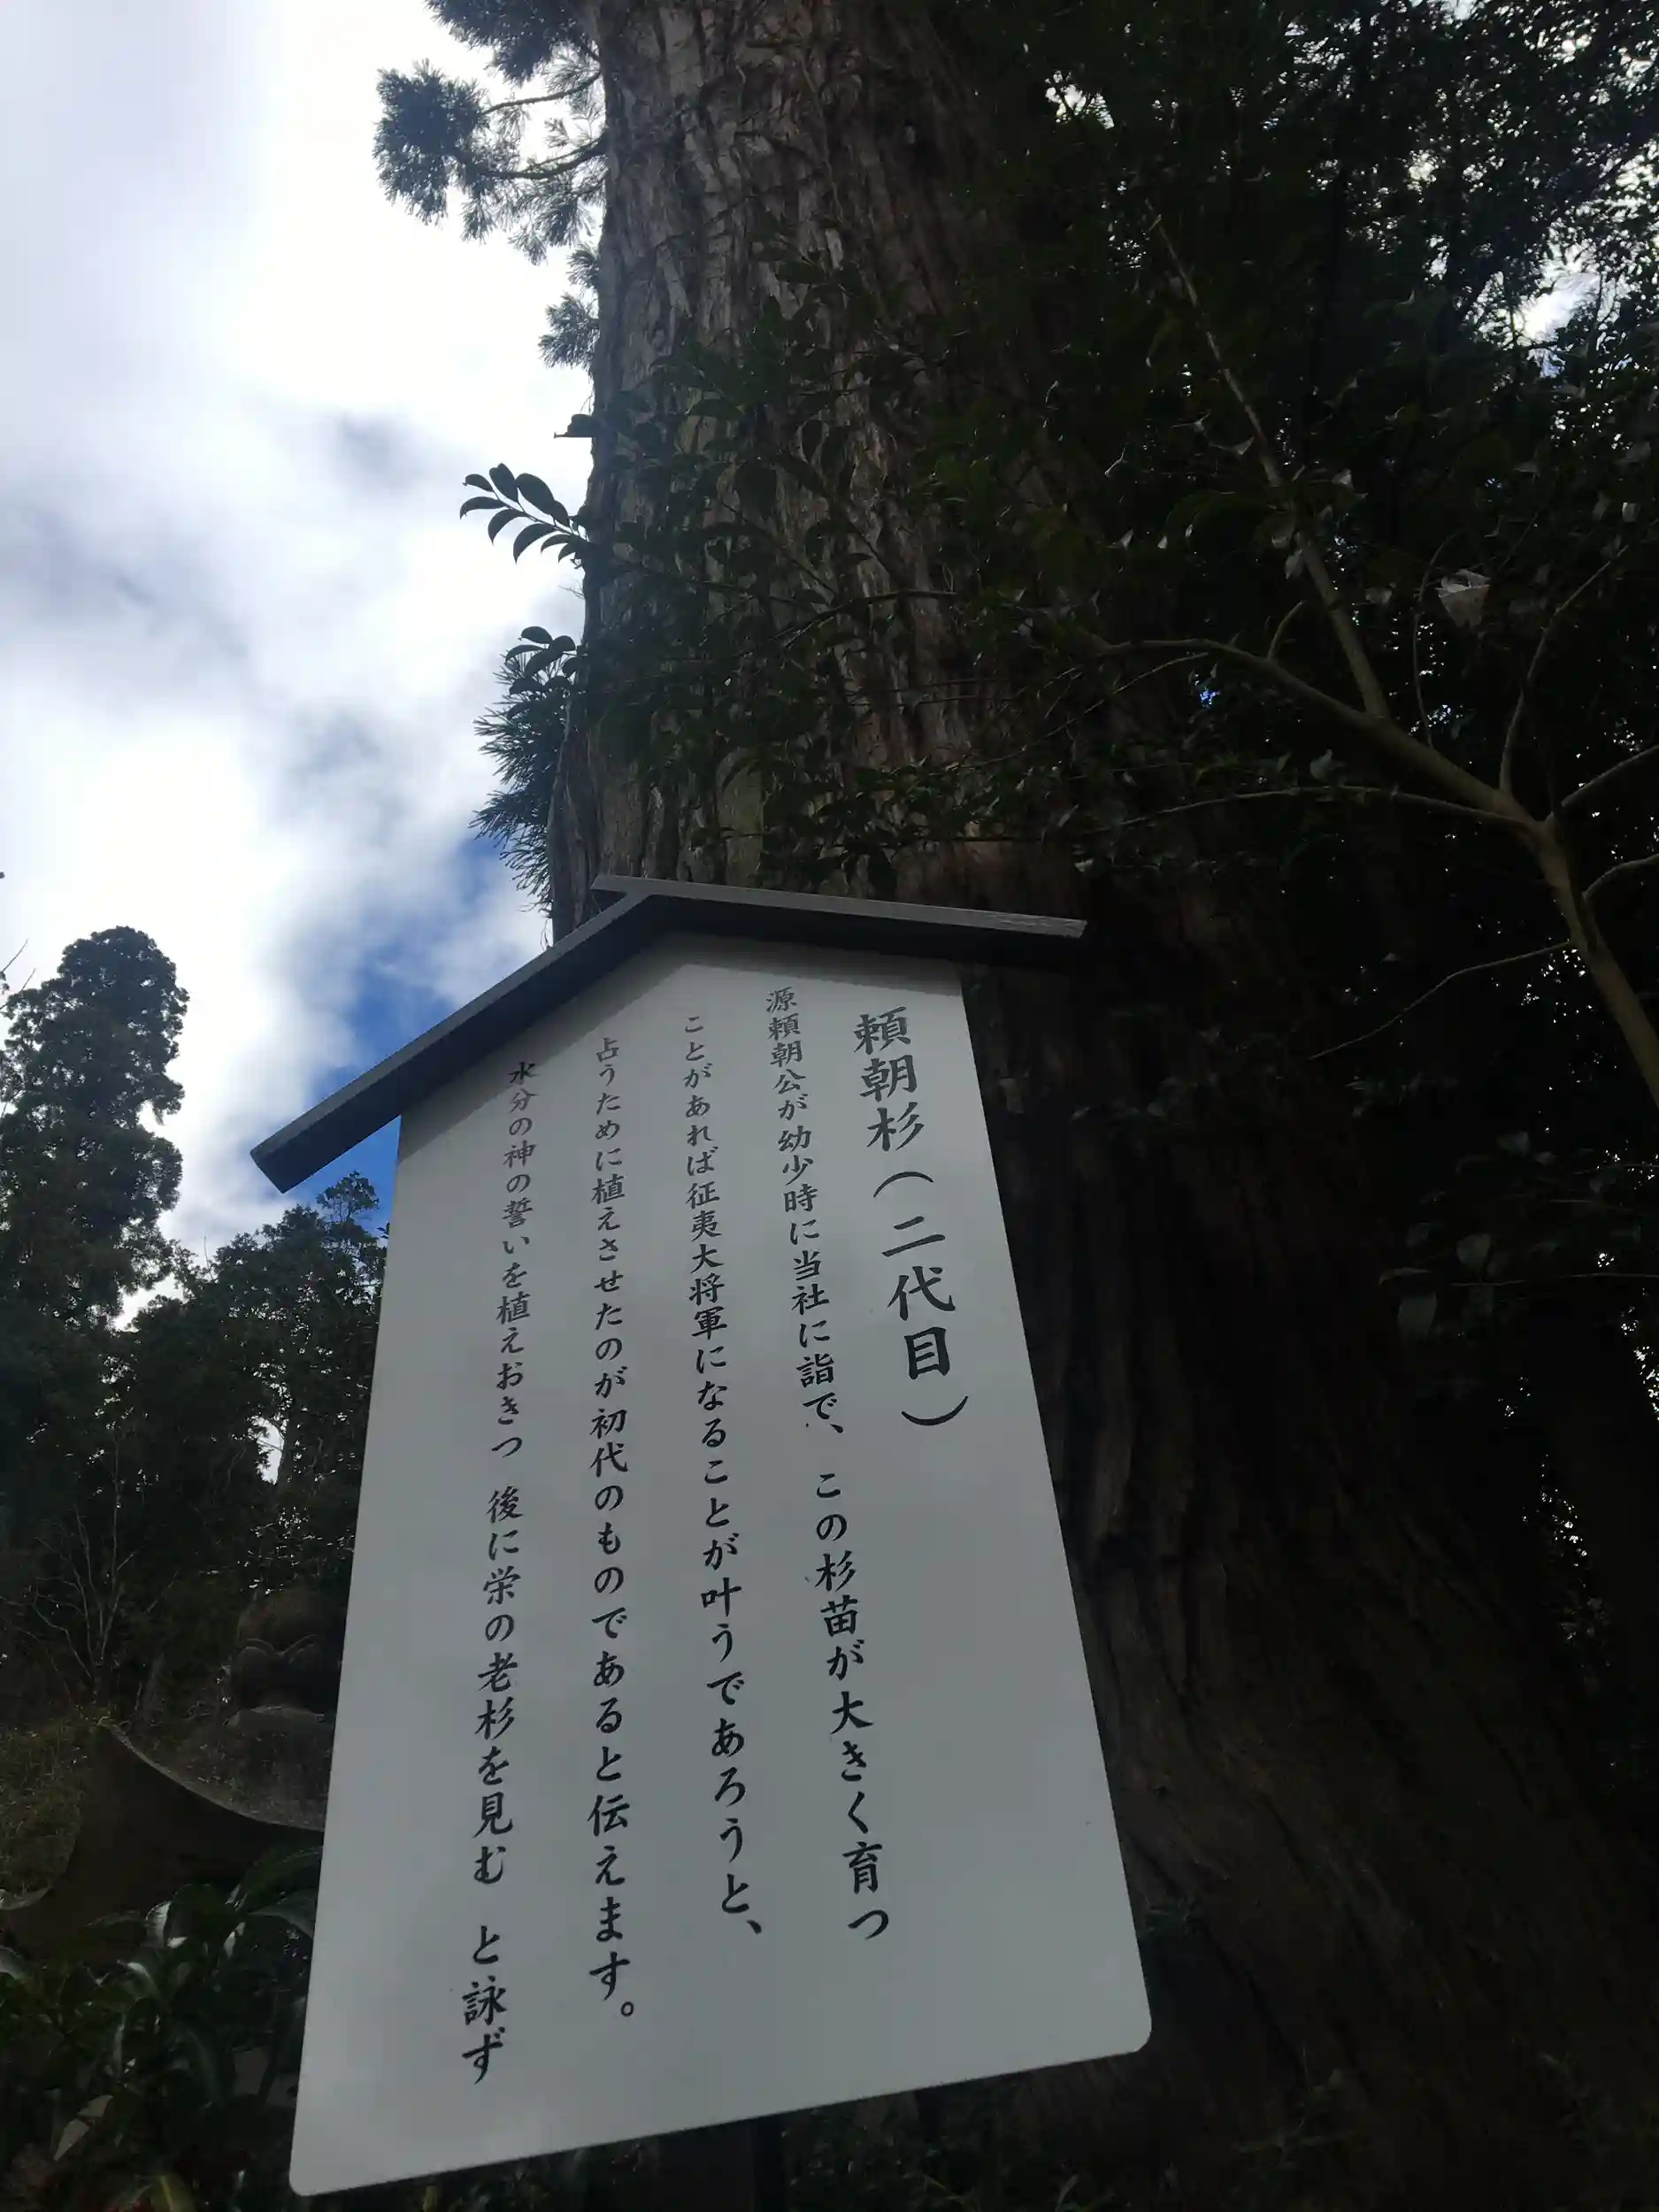 頼朝杉(二代目)
源頼朝公が幼少時に当社に詣で、この杉苗が大きく育つ
ことがあれば征夷大将軍になることが叶うであろうと、
占うために植えさせたのが初代のものであると伝えます。
水分の神の誓いを植えおきつ 後に栄の老杉を見む と詠ず